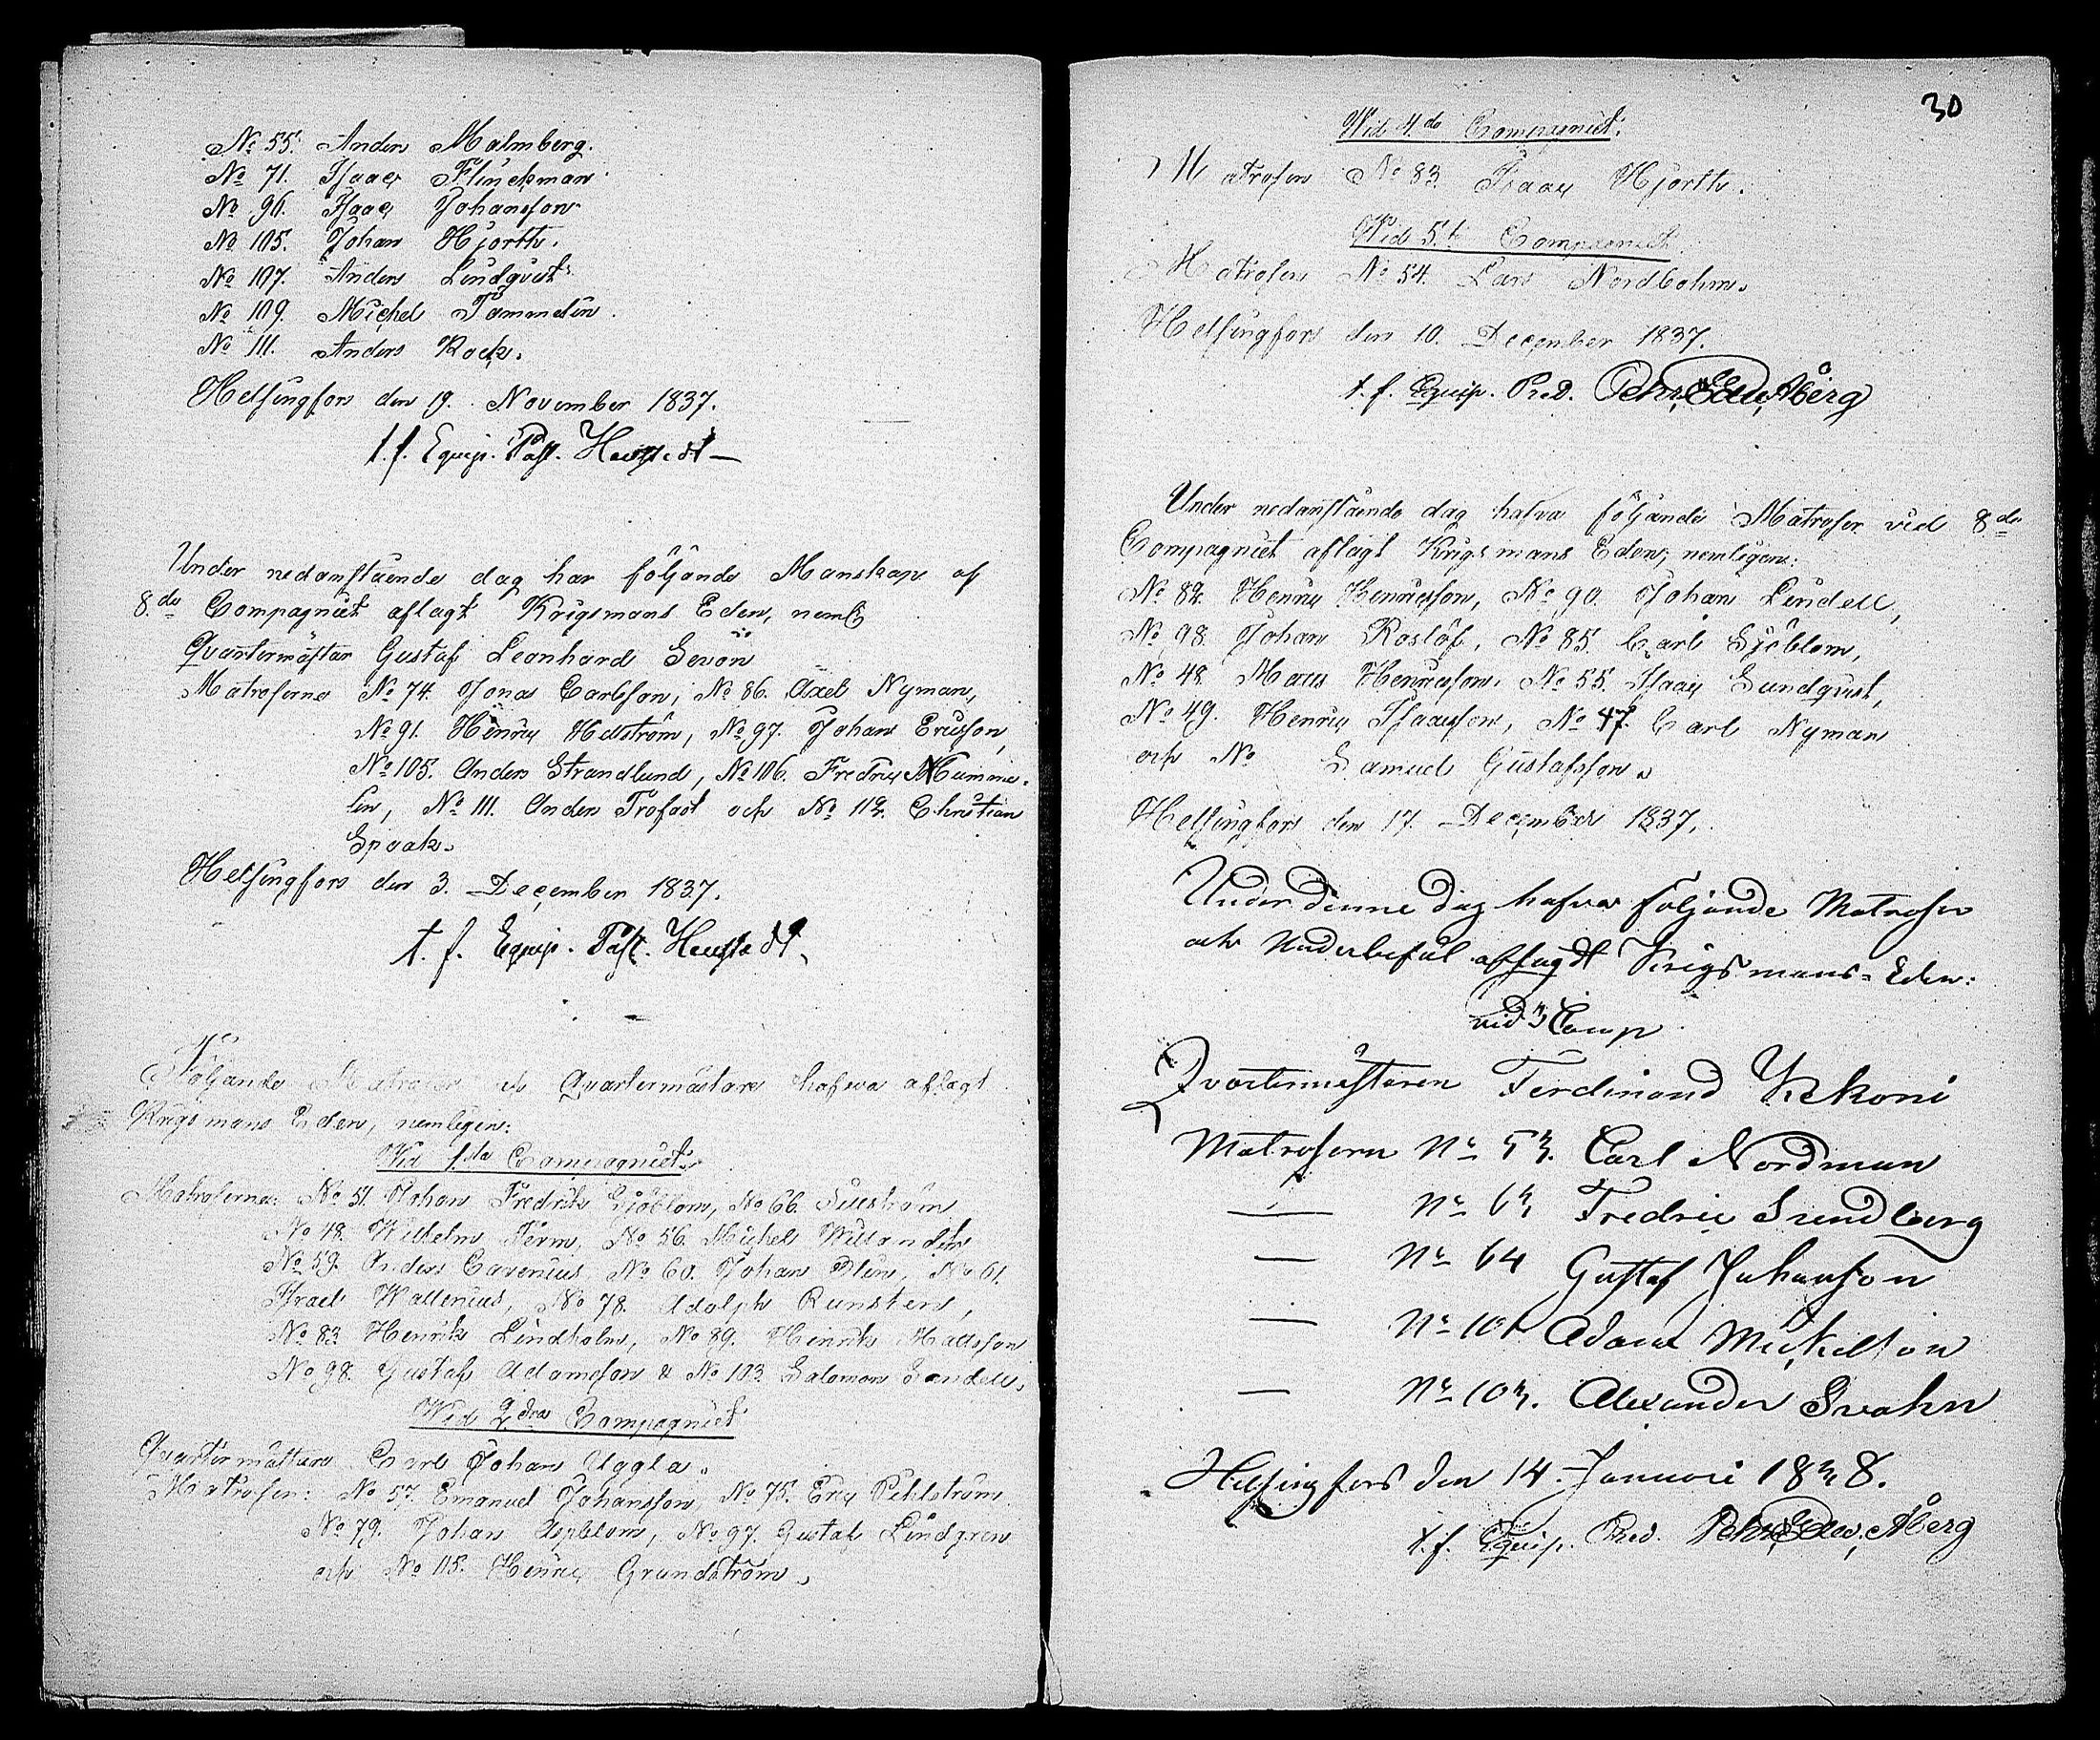 No 55. Anders Malmberg.
No 71. Isaac Flinckman.
No 96. Isaac Johansson
No 105. Johan Hjorth.
No 107. Anders Lindqvist
No 109. Michel Tammelin.
No 111. Anders Rock.
Helsingfors den 19. November 1837.
t. f. Equip. Past.
Under nedanstående dag har följande Manskap af
8.de Compagniet aflagt Krigsmans Eden, neml.
Quartermästar Gustaf Leonhard Sevon
Matroserne No 74. Jonas Carlsson, No 86. Axel Nyman,
No 91. Henric Hellström, No 97. Johan Ericsson,
No 105. Anders Strandlund, No 106. Fredric Humme-
lin, No 111. Anders Trofast och No 112. Christian
Spaak.
Helsingfors den 3. December 1837.
t. f. Equip. Past.
Följande Matroser och Quartermästare hafva aflagt
Krigsmans Eden, nemligen:
Wid 1.sta Compagniet.
Matroserne: No 51. Johan Fredrik Sjöblom, No 66.
No 48. Wilhelm Ferm, No 56. Michel Willander
No 59. Anders Cavenius, No 60. Johan No 61.
Israel Wallenius, No 78. Adolph Runsten,
No 83 Henrik Lindholm, No 89. Henrik Mattsson
No 98. Gustaf Adamsson & No 103. Salomon Sandell.
Wid 2.dra Compagniet
Quartermästare Carl Johan Uggla.
Matroser: No 57. Emanuel Johansson, No 75. Eric Pehlström
No 79. Johan Asplom, No 97. Gustaf Lindgren
och No 115. Henric Grundström.
30
Wid 4.de Compagniet.
Matrosen No 83. Isaac Hjorth.
Wid 5.te Compagniet
Matrosen No 54. Lars Nordbohm.
Helsingfors den 10. December 1837.
t. f. Equip. Pred. Pehr Edv. Åberg
Under nedanstående dag hafva följande Matroser vid 8de
Compagniet aflagt Krigsmans Eden, nemligen:
No 82. Henric Henricsson, No 90. Johan Lindell,
No 98. Johan Roslöf, No 85. Carl Sjöblom,
No 48. Matts Henricsson, No 55. Isaac Sundqvist,
No 49. Henric Isacsson, No 47. Carl Nyman
och No Samuel Gustafsson.
Helsingfors den 17. December 1837.
Under denne dag hafva följande Matroser
och Underbefäl aflagdt Krigsmans-Eden:
vid 3 Comp
Qvartermästeren Ferdinand Kekoni
Matrosern No 53. Carl Nordman
— No 63 Fredric Sundberg
— No 64 Gustaf Johanson
— No 101 Adam Mickelson
— No 103. Alexander Svahn
Helsingfors den 14. Januari 1838.
t. f. Equip. Pred. Pehr Edv. Åberg